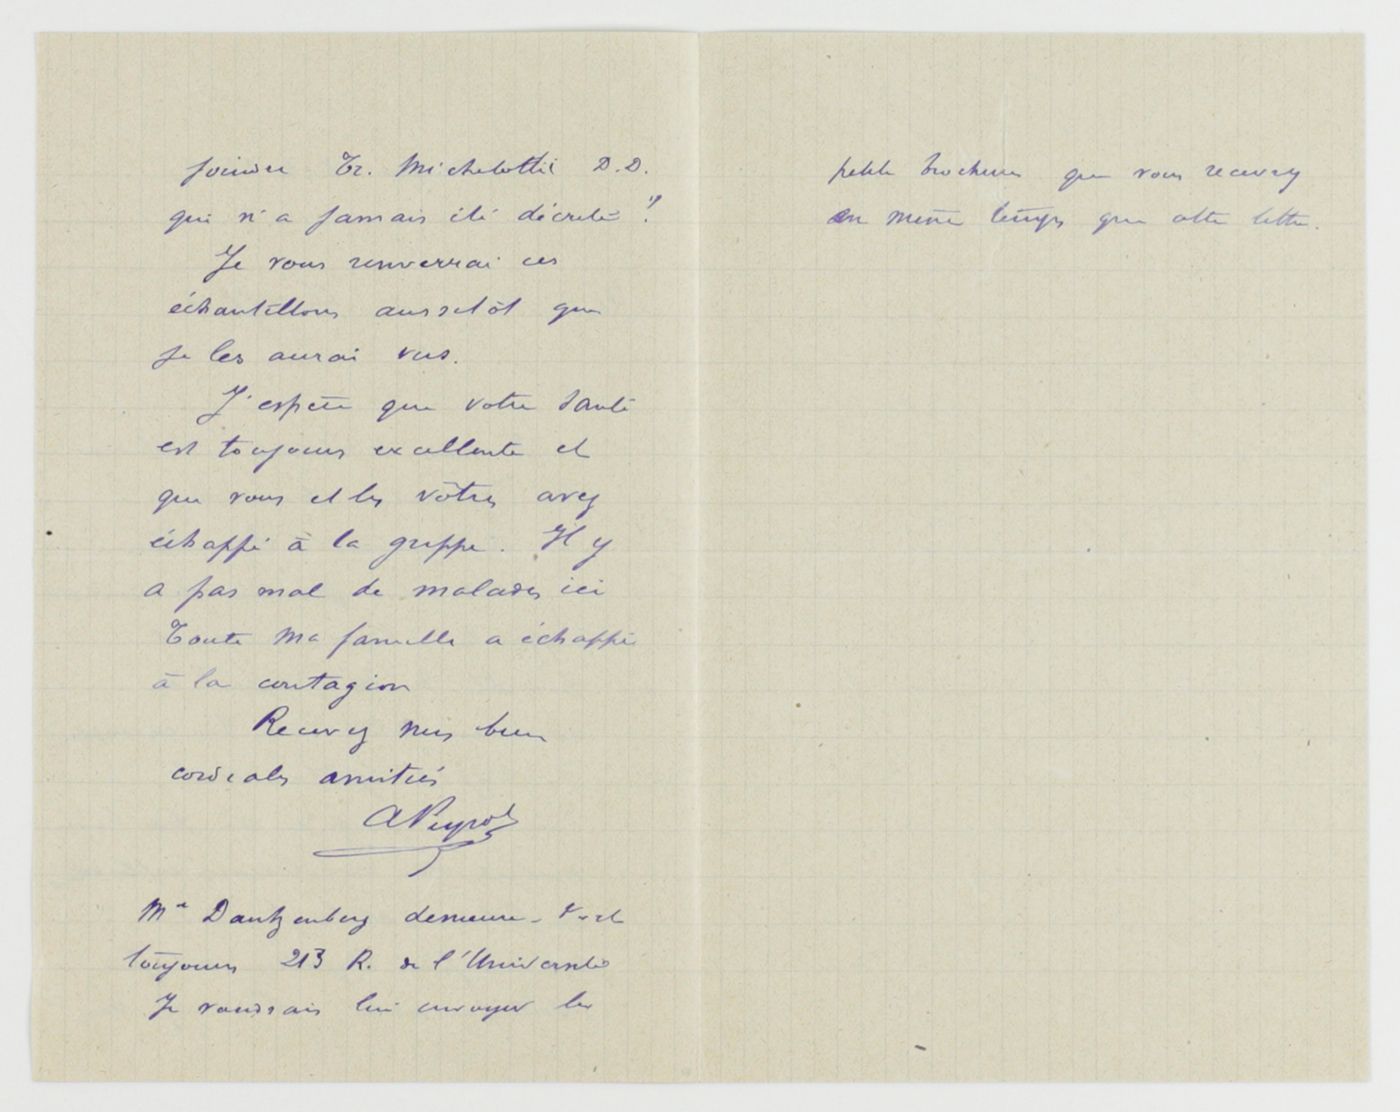 joindre Tr. Michelottii D.D.
qui n'a jamais été décrite ?
Je vous renverrai ces
échantillons aussitôt que
je les aurai vus.
J'espère que votre santé
est toujours excellente et
que vous et les vôtres avez
échappé à la grippe. Il y
a pas mal de malades ici
Toute ma famille a échappé
à la contagion
Recevez mes bien
cordiales amitiés
A Peyrot
Mr Dautzenberg demeure-t-il
toujours 213 R. de l'Université
Je voudrais lui envoyer les
petites brochures que vous recevrez
en même temps que cette lettre.